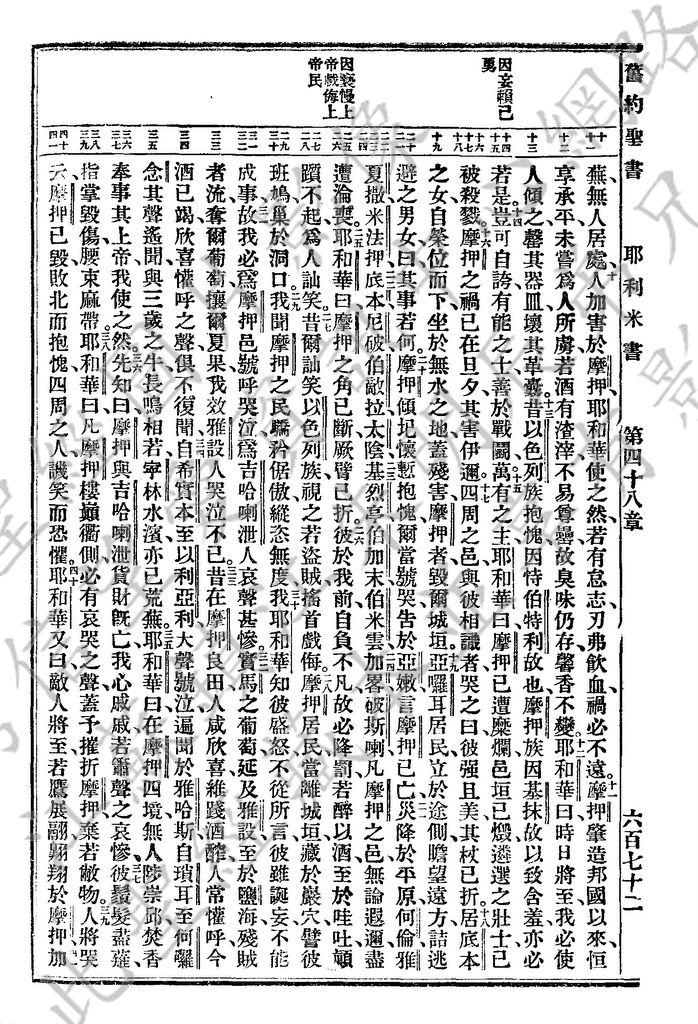 舊約聖書 耶利米書 第四十八章 六百七十二
因妄賴己勇
因褻慢上帝戲侮上帝民
蕪無人居處人加害於摩押耶和華使之然若有怠志刃弗飲血禍必不遠摩押肇造邦國以來恒
享承平未嘗爲人所虜若酒有渣滓不易尊罍故臭味仍存馨香不變耶和華曰時日將至我必使
人傾之罄其器皿壞其革囊昔以色列族抱愧因恃伯特利故也摩押族因基抹故以致含羞亦必
若是豈可自誇有能之士善於戰鬭萬有之主耶和華曰摩押已遭糜爛邑垣已燬遴選之壯士已
被殺戮摩押之禍已在旦夕其害伊邇四周之邑與彼相識者哭之曰彼强且美其杖已折居底本
之女自榮位而下坐於無水之地蓋殘害摩押者毀爾城垣亞囉耳居民立於途側瞻望遠方詰逃
避之男女曰其事若何摩押傾圮懷慙抱愧爾當號哭吿於亞嫩言摩押已亡災降於平原何倫雅
夏撒米法押底本尼破伯敵拉太陰基烈亭伯加末伯米雲加畧破斯喇凡摩押之邑無論遐邇盡
遭淪喪耶和華曰摩押之角已斷厥臂已折彼於我前自負不凡故必降罰若醉以酒至於哇吐顚
躓不起爲人訕笑昔爾訕笑以色列族視之若盜賊搖首戲侮摩押居民當離城垣藏於巖穴譬彼
班鳩巢於洞口我聞摩押之民驕矜倨傲縱恣無度我耶和華知彼盛怒不從所言彼雖誕妄不能
成事故我必爲摩押邑號呼哭泣爲吉哈喇泄人哀聲甚慘實馬之葡萄延及雅設至於鹽海殘賊
者流奪爾葡萄攘爾夏果我效雅設人哭泣不已昔在摩押良田人咸欣喜維踐酒醡人常懽呼今
酒已竭欣喜懽呼之聲俱不復聞自希實本至以利亞利大聲號泣遍聞於雅哈斯自瑣耳至何囉
念其聲遙聞與三歲之牛長鳴相若寧林水濱亦已荒蕪耶和華曰在摩押四境無人陟崇邱焚香
奉事其上帝我使之然先知曰摩押與吉哈喇泄貨財旣亡我心戚戚若簫聲之哀慘彼鬚髮盡薙
指掌毀傷腰束麻帶耶和華曰凡摩押樓巔衢側必有哀哭之聲蓋予摧折摩押棄若敝物人將哭
云摩押已毀敗北而抱愧四周之人譏笑而恐懼耶和華又曰敵人將至若鷹展翮翺翔於摩押加